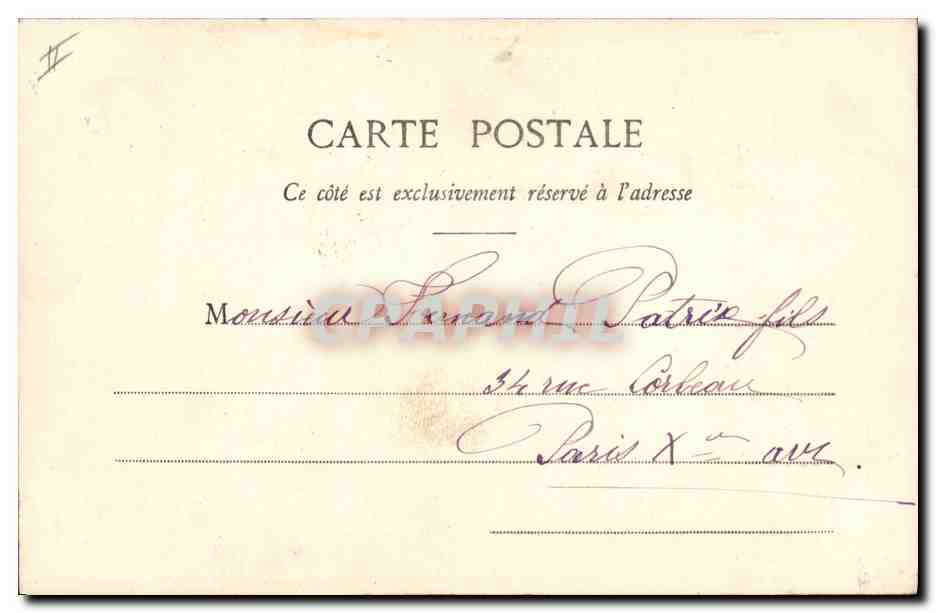 II
CARTE POSTALE
Ce côté est exclusivement réservé à l'adresse
Monsieur Fernand Patrix fils
34 rue Corbeau
Paris Xe arr.
CPAPHIL